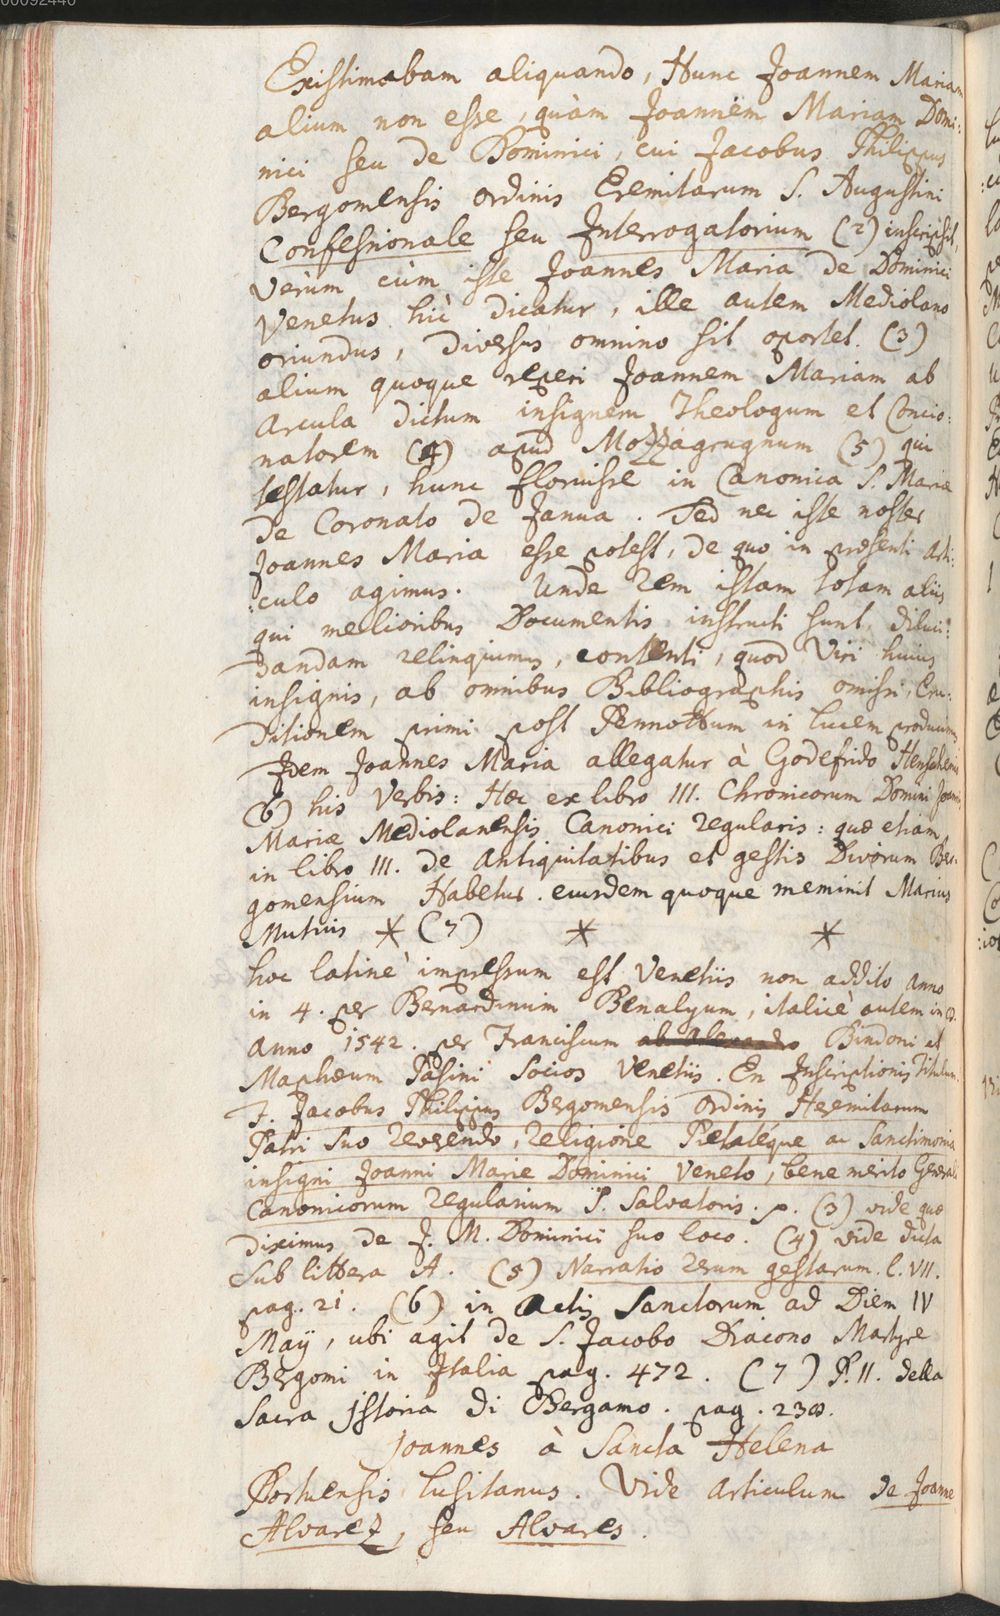 00092440
Existimabam aliquando, Hunc Joannem Mariam
alium non esse, quàm Joannem Mariam Domi:
nici seu de Dominici, cui Jacobus Philippus
Bergomensis ordinis Eremitarum S. Augustini
Confessionale seu Interrogatorium (2) inscripsit,
Verùm cùm iste Joannes Maria de Dominici
Venetus hîc dicatur, ille autem Mediolano
oriundus, diversus omnino sit oportet. (3)
alium quoque reperi Joannem Mariam ab
Arcula dictum insignem Theologum et Concio:
natorem (4) apud Mozzagrugnum (5) qui
testatur, hunc floruisse in Canonica S. Mariæ
de Coronato de Janua. Sed nec iste noster
Joannes Maria esse potest, de quo in præsenti Arti:
:culo agimus. Unde rem istam totam aliis
qui melioribus Documentis instructi sunt, diluci:
dandam relinquimus, contenti, quod Viri huius
insignis, ab omnibus Bibliographis omissi, Eru:
ditionem primi post Pennottum in lucem producimus
Idem Joannes Maria allegatur à Godefrido Henschenio
(6) his Verbis: Hæc ex libro III. Chronicorum Domini Joannis
Mariæ Mediolanensis Canonici regularis: quæ etiam
in libro III. de Antiquitatibus et gestis Divorum Ber:
gomensium Habetur. eiusdem quoque meminit Marius
Mutius * (7) * *
hoc latinè impressum est Venetiis non addito anno
in 4. per Bernardinum Benalyum, italicè autem in 8.
anno 1542. per Franciscum Bindoni et
Maphæum Pasini Socios Venetiis. En Inscriptionis Titulum.
F. Jacobus Philippus Bergomensis ordinis Heremitarum
Patri suo reverendo, religione Pietatéque ac Sanctimonia
insigni Joanni Marie Dominici Veneto, bene merito Generali
Canonicorum regularium S. Salvatoris. p. (3) vide quæ
diximus de J. M. Dominici suo loco. (4) vide dicta
sub littera A. (5) Narratio rerum gestarum. l. VII.
pag. 21. (6) in Actis Sanctorum ad Diem IV
Maÿ, ubi agit de S. Jacobo Diacono Martyre
Bergomi in Italia pag. 472. (7) P. II. della
Sacra jstoria di Bergamo. pag. 238.
Joannes à Sancta Helena
Portuensis Lusitanus. Vide Articulum de Joanne
Alvarez, seu Alvares.